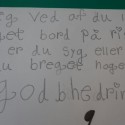 ig. Ved af du i
et bord på ri
er du syg, eller
du bregee noge
god bhedrin